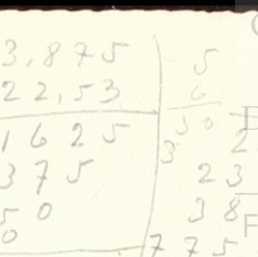 3,875
22,53
1625
375
50
0
5
6
30
3 2
23
38
775